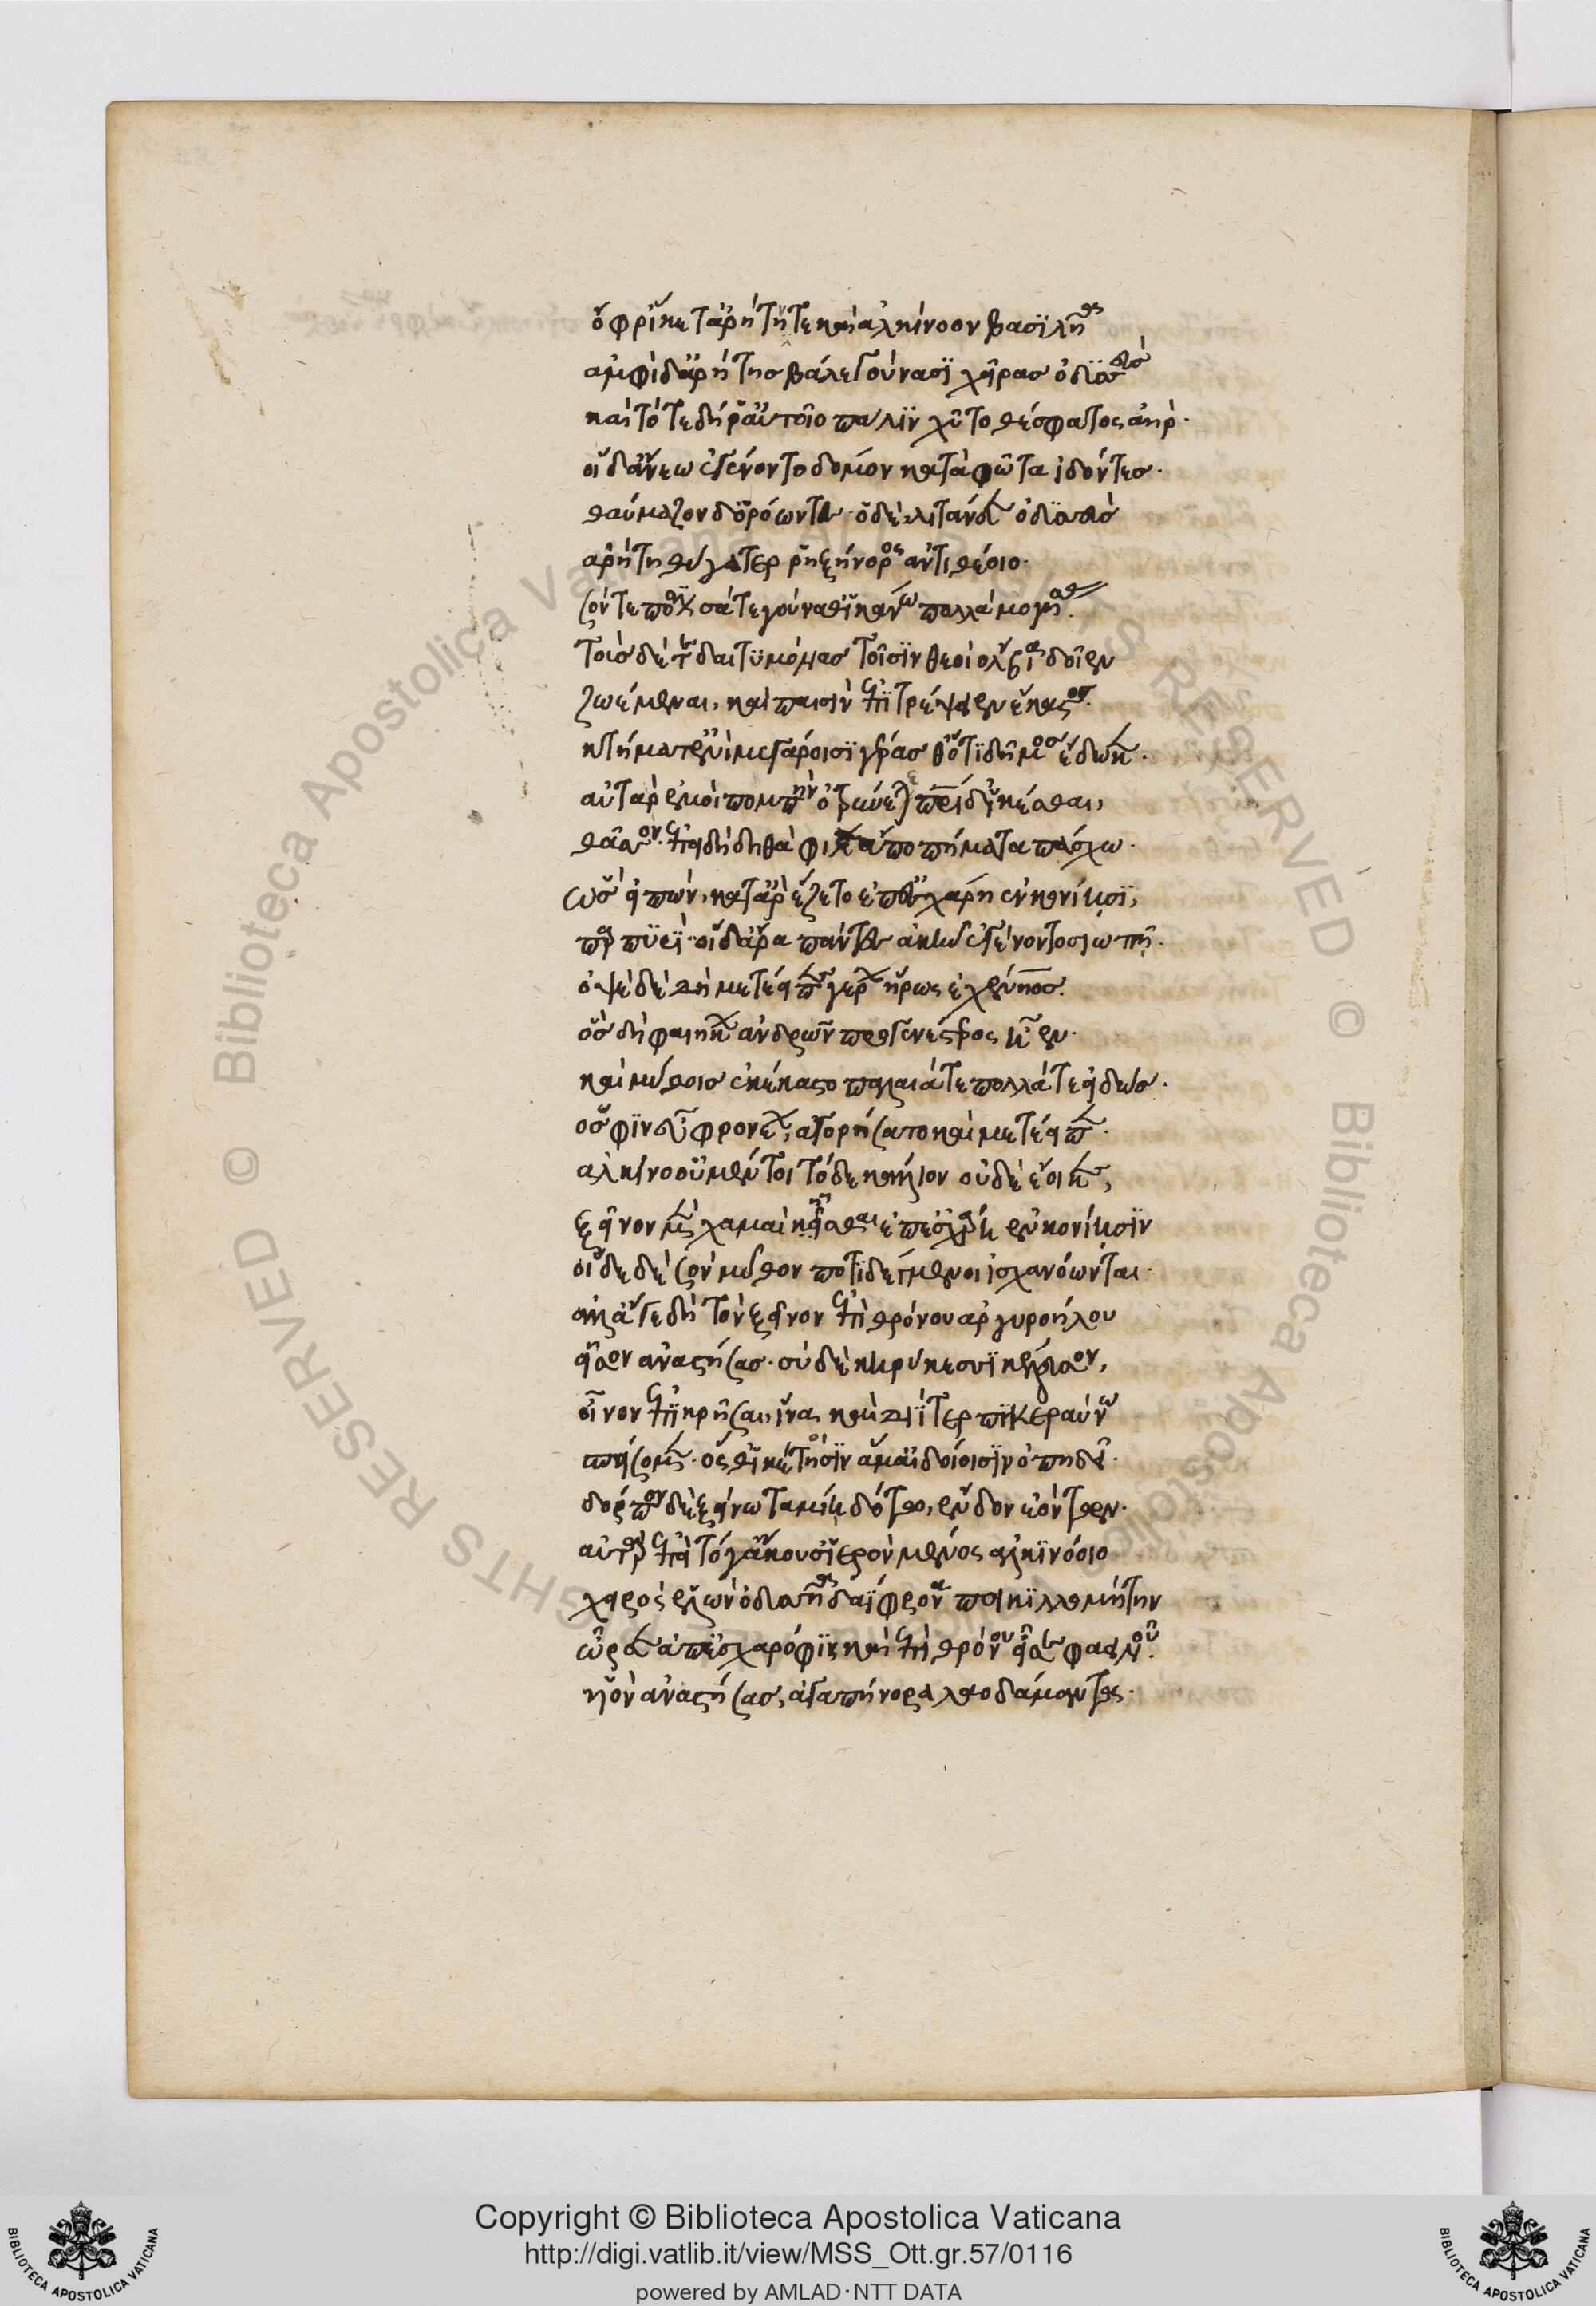 ὄφρ' ἵκετ' ἀρήτην τε καὶ ἀλκίνοον βασιλῆα
ἀμφὶ δ' ἀρήτης βάλε γούνασι χεῖρας ὀδυσσεὺς
καὶ τότε δή ῥ' αὐτοῖο πάλιν χύτο θέσφατος ἀήρ.
οἱ δ' ἄνεω ἐγένοντο δόμον κάτα φῶτα ἰδόντες.
θαύμαζον δ' ὁρόωντες. ὁ δὲ λιτάνευεν ὀδυσσεὺς
ἀρήτη θύγατερ ῥηξήνορος ἀντιθέοιο.
σόν τε πόσιν σά τε γούναθ' ἱκάνω πολλὰ μογήσας.
τούσδέ τε δαιτυμόνας τοῖσιν θεοὶ ὄλβια δοῖεν
ζωέμεναι, καὶ παισὶν ἐπιτρέψειεν ἕκαστος.
κτήματ' ἐνὶ μεγάροισι γέρας θ' ὅτι δῆμος ἔδωκεν.
αὐτὰρ ἐμοὶ πομπὴν ὀτρύνετε πατρίδ' ἱκέσθαι,
θᾶσσον. ἐπειδὴ δηθὰ φίλων ἄπο πήματα πάσχω.
ὣς εἰπὼν, κατ' ἄρ' ἕζετο ἐπ' ἐσχάρῃ ἐν κονίῃσι,
πὰρ πυρί. οἱ δ' ἄρα πάντες ἀκὴν ἐγένοντο σιωπῇ.
ὀψὲ δὲ δὴ μετέειπε γέρων ἥρως ἐχένηος.
ὃς δὴ φαιήκων ἀνδρῶν προγενέστερος ἦεν.
καὶ μύθοισι ἐκέκαστο παλαιά τε πολλά τε εἰδώς.
ὅ σφιν ἐϋφρονέων, ἀγορήσατο καὶ μετέειπεν.
ἀλκίνο' οὐ μέν τοι τόδε κάλλιον οὐδὲ ἔοικε,
ξεῖνον μὲν χαμαὶ ἧσθαι ἐπ' ἐσχάρῃ ἐν κονίῃσιν
οἵδε δὲ σὸν μῦθον ποτιδέγμενοι ἰσχανόωνται.
ἀλλ' ἄγε δὴ τὸν ξεῖνον ἐπὶ θρόνου ἀργυροήλου
εἷσον ἀναστήσας. σὺ δὲ κηρύκεσσι κέλευσον,
οἶνον ἐπικρῆσαι, ἵνα καὶ διὶ τερπικεραύνῳ
σπείσομεν. ὅς θ' ἱκέτῃσιν ἅμ' αἰδοίοισιν ὀπηδεῖ.
δόρπον δὲ ξείνῳ ταμίη δότω, ἔνδον ἐόντων.
αὐτὰρ ἐπεὶ τό γ' ἄκουσ' ἱερὸν μένος ἀλκινόοιο
χειρὸς ἑλὼν ὀδυσῆα δαΐφρονα ποικιλομήτην
ὦρσεν ἀπ' ἐσχαρόφιν καὶ ἐπὶ θρόνου εἷσε φαεινοῦ.
υἱὸν ἀναστήσας, ἀγαπήνορα λαοδάμαντα.
Copyright © Biblioteca Apostolica Vaticana
http://digi.vatlib.it/view/MSS_Ott.gr.57/0116
powered by AMLAD·NTT DATA